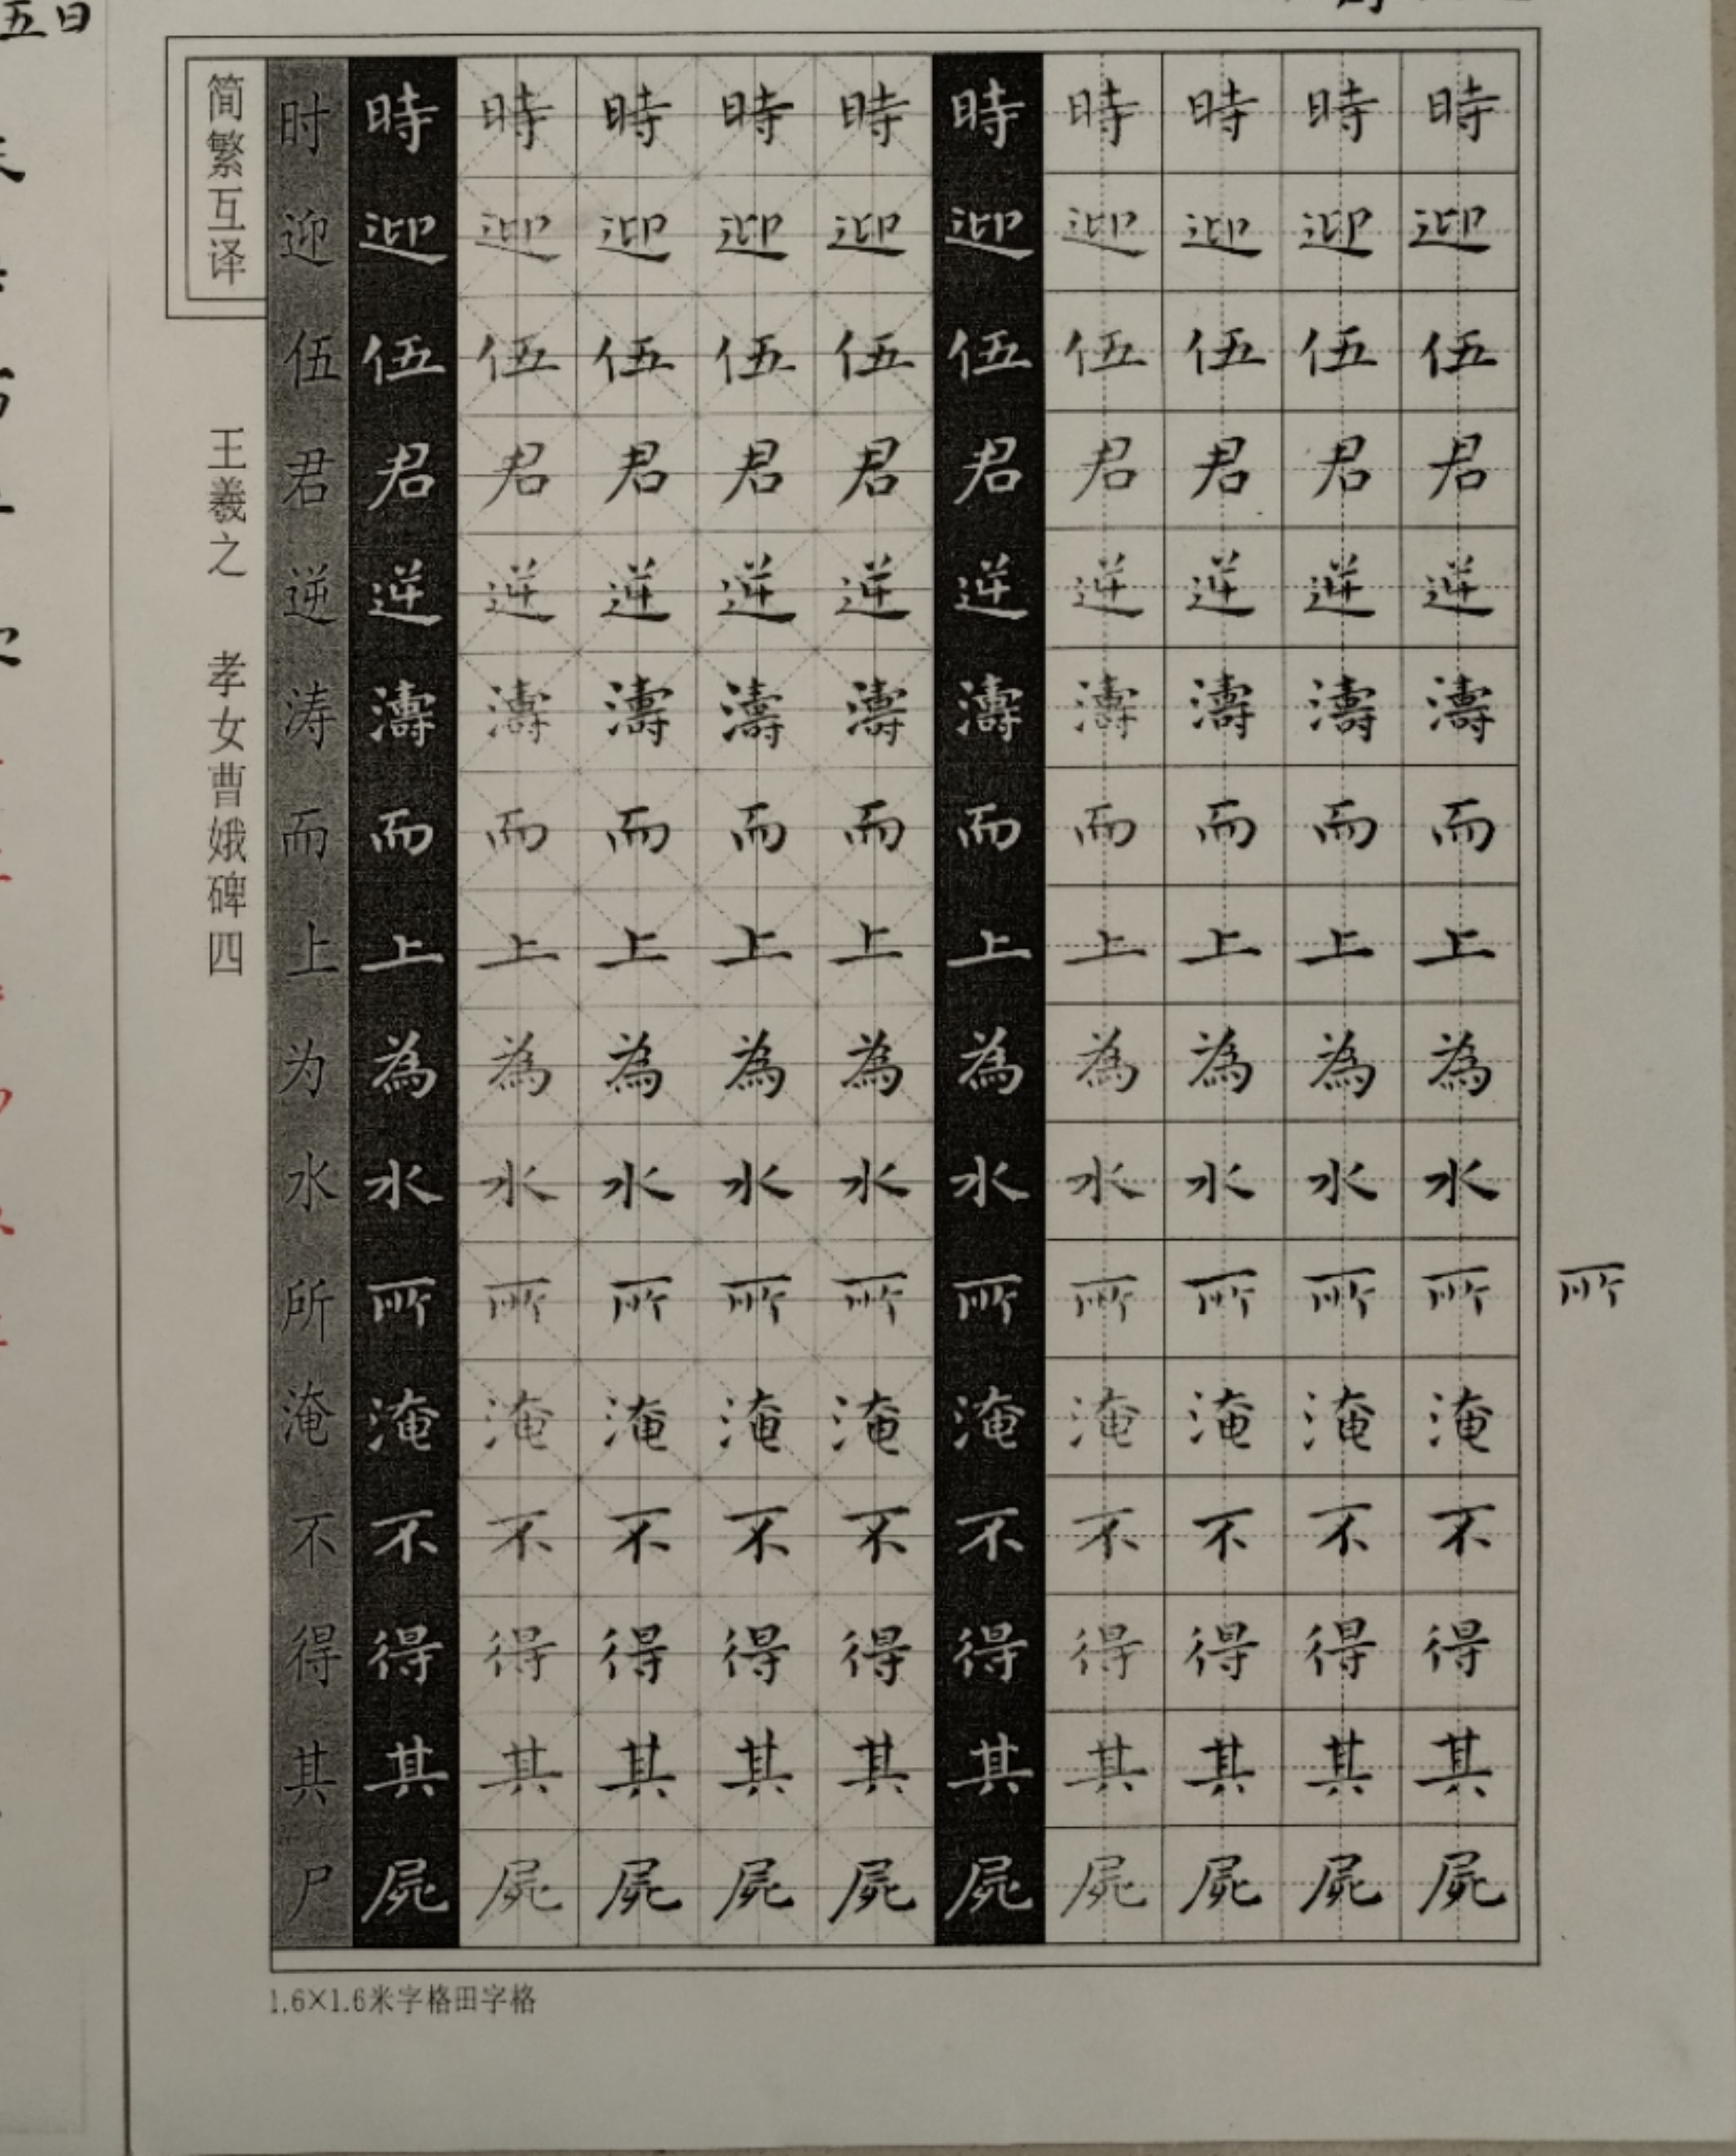 五日
简繁互译
王羲之 孝女曹娥碑四
时迎伍君逆涛而上为水所淹不得其尸
時迎伍君逆濤而上為水所淹不得其屍
時迎伍君逆濤而上為水所淹不得其屍
時迎伍君逆濤而上為水所淹不得其屍
時迎伍君逆濤而上為水所淹不得其屍
時迎伍君逆濤而上為水所淹不得其屍
時迎伍君逆濤而上為水所淹不得其屍
時迎伍君逆濤而上為水所淹不得其屍
時迎伍君逆濤而上為水所淹不得其屍
時迎伍君逆濤而上為水所淹不得其屍
時迎伍君逆濤而上為水所淹不得其屍
所
1.6×1.6米字格田字格